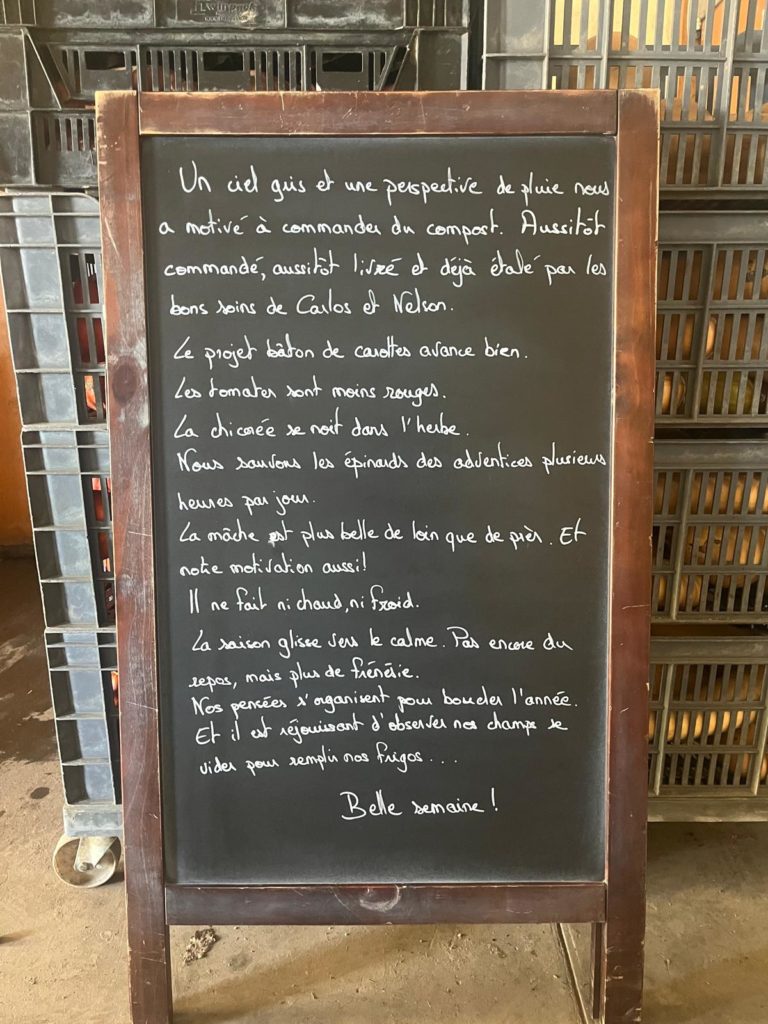 Un ciel gris et une perspective de pluie nous
a motivé à commander du compost. Aussitôt
commandé, aussitôt livré et déjà étalé par les
bons soins de Carlos et Nelson.
Le projet bâton de carottes avance bien.
Les tomates sont moins rouges.
La chicorée se noit dans l'herbe.
Nous sauvons les épinards des adventices plusieurs
heures par jour.
La mâche est plus belle de loin que de près. Et
notre motivation aussi!
Il ne fait ni chaud, ni froid.
La saison glisse vers le calme. Pas encore du
repos, mais plus de frénésie.
Nos pensées s'organisent pour boucler l'année.
Et il est réjouissant d'observer nos champs se
vider pour remplir nos frigos...
Belle semaine!